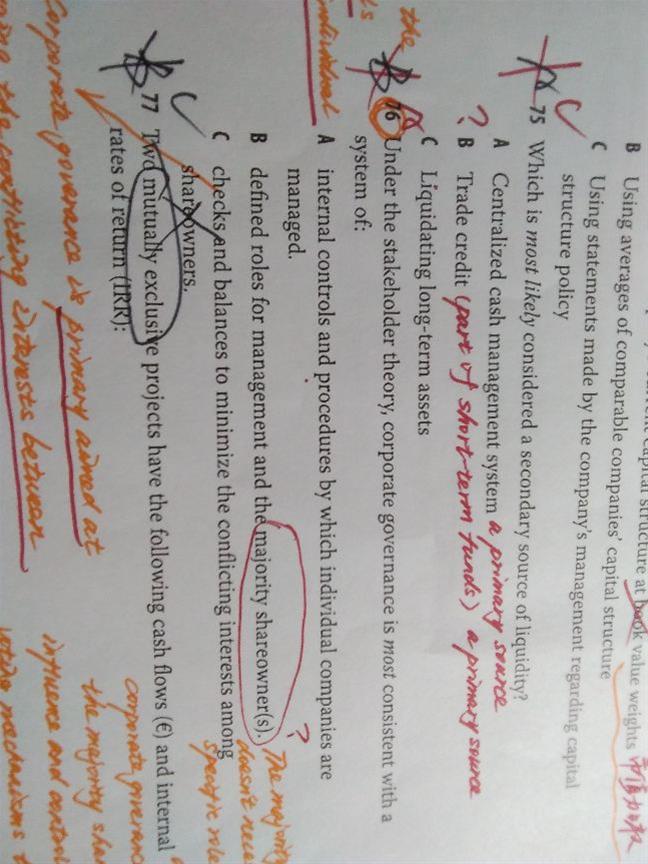 B Using averages of comparable companies' capital structure
C Using statements made by the company's management regarding capital
structure policy
C
75 Which is most likely considered a secondary source of liquidity?
A Centralized cash management system a primary source
? B Trade credit (part of short-term funds) a primary source
C Liquidating long-term assets
76 Under the stakeholder theory, corporate governance is most consistent with a
system of:
A internal controls and procedures by which individual companies are
managed.
B defined roles for management and the majority shareowner(s). ?
C checks and balances to minimize the conflicting interests among
shareowners.
C
77 Two mutually exclusive projects have the following cash flows (€) and internal
rates of return (IRR):
the
individual
The majority
doesn't
specific role
Corporate governance is primary aimed at
interests between
corporate governance
the majority
influence and control
voting mechanisms